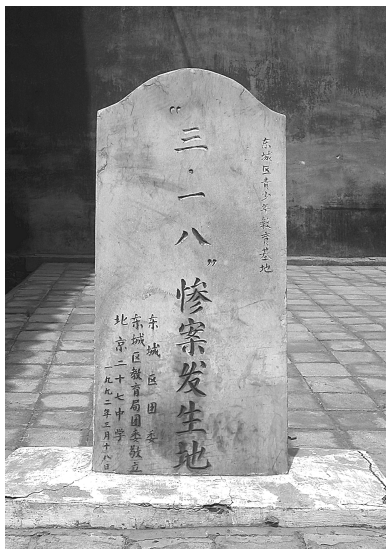 东城区青少年教育基地
“三·一八”惨案发生地
东城区团委
东城区教育局团委敬立
北京二十七中学
一九九二年三月十八日